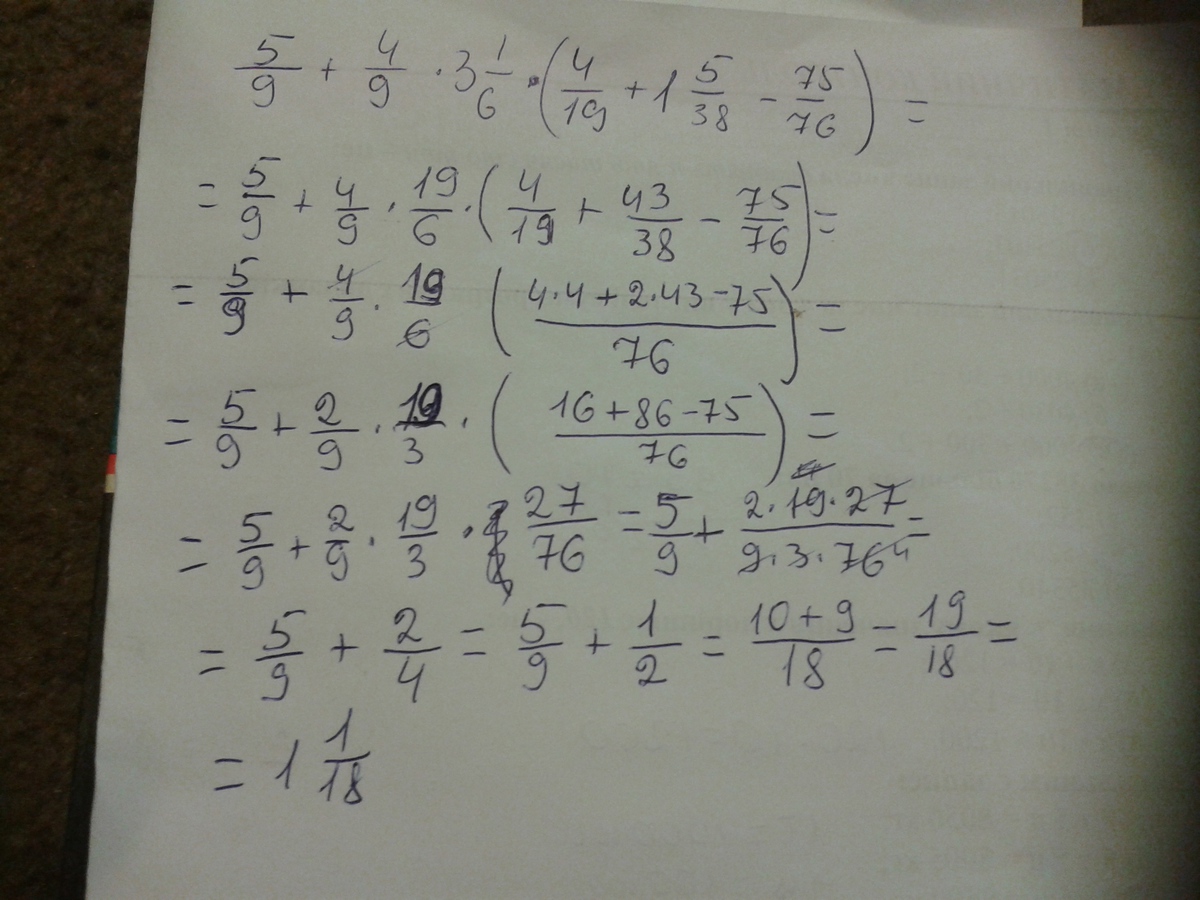 5/9 + 4/9 · 3 1/6 · (4/19 + 1 5/38 − 75/76) =
= 5/9 + 4/9 · 19/6 · (4/19 + 43/38 − 75/76) =
= 5/9 + 4/9 · 19/6 ((4·4 + 2·43 − 75)/76) =
= 5/9 + 2/9 · 19/3 · ((16 + 86 − 75)/76) =
= 5/9 + 2/9 · 19/3 · 27/76 = 5/9 + (2·19·27)/(9·3·76 4) =
= 5/9 + 2/4 = 5/9 + 1/2 = (10 + 9)/18 = 19/18 =
= 1 1/18